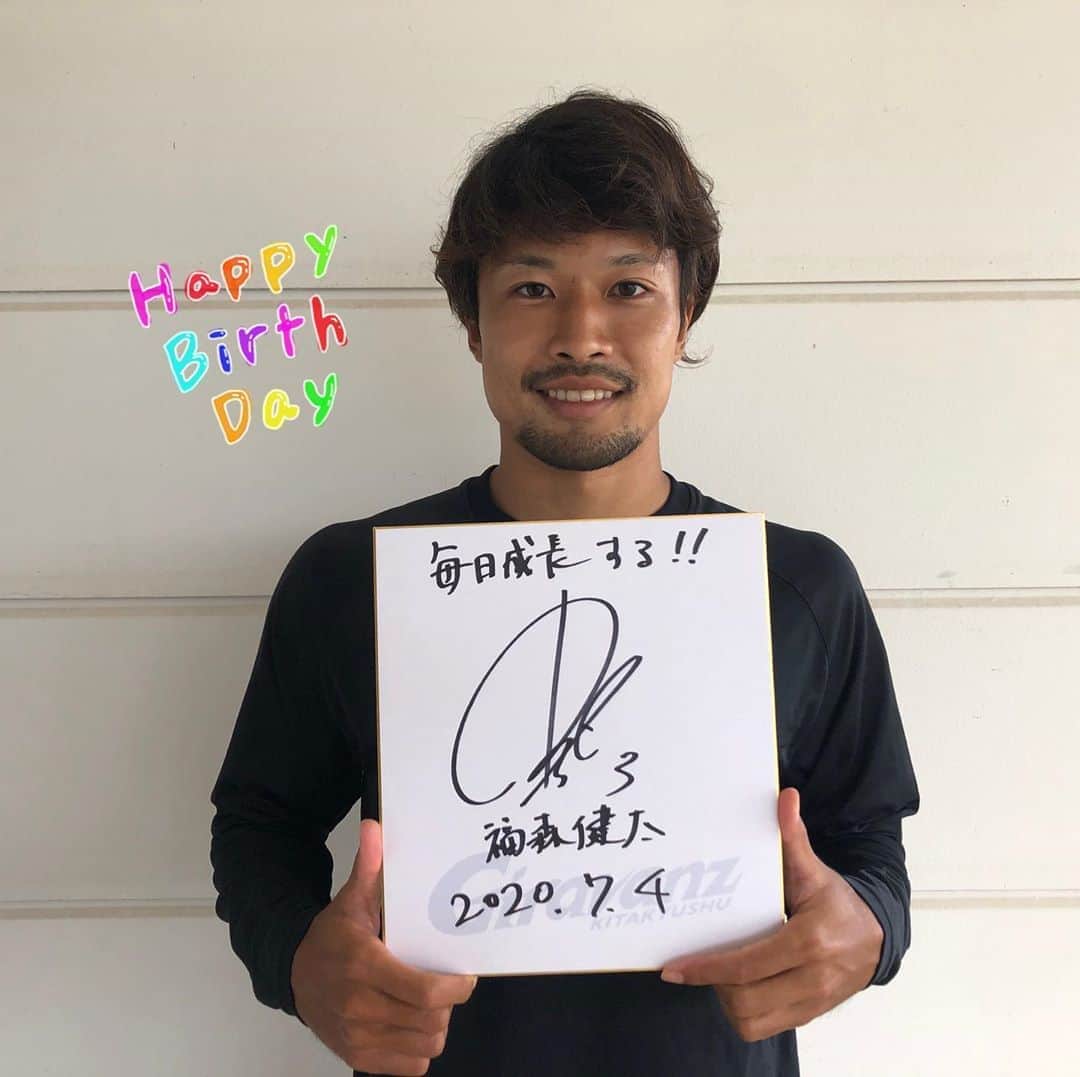 Happy
Birth
Day
毎日成長する!!
3
福森健太
2020.7.4
Giravanz
KITAKYUSHU